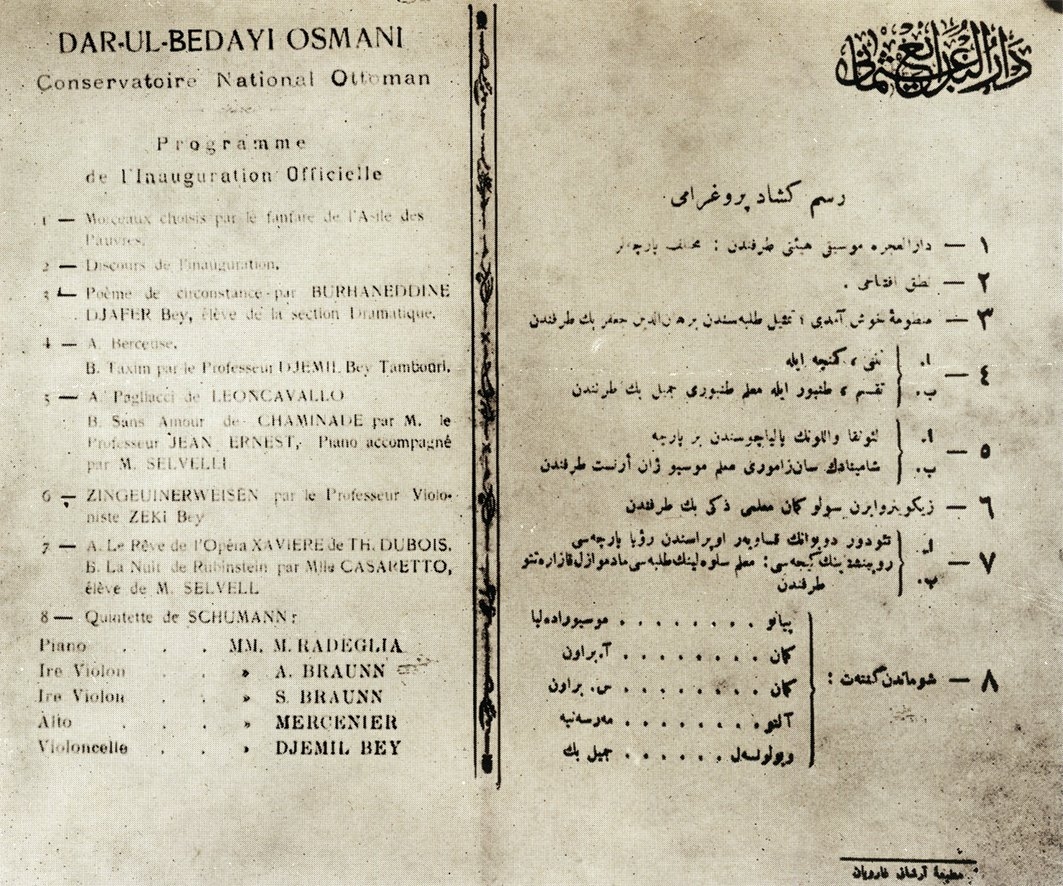 DAR-UL-BEDAYI OSMANI
Conservatoire National Ottoman
Programme
de l'Inauguration Officielle
1 — Morceaux choisis par le fanfare de l'Asile des
Pauvres.
2 — Discours de l'inauguration.
3 — Poème de circonstance par BURHANEDDINE
DJAFER Bey, élève de la section Dramatique.
4 — A. Berceuse.
B. Taxim par le Professeur DJEMIL Bey Tambouri.
5 — A. Pagliacci de LEONCAVALLO
B. Sans Amour de CHAMINADE par M. le
Professeur JEAN ERNEST, Piano accompagné
par M. SELVELLI
6 — ZINGEUINERWEISEN par le Professeur Violo-
niste ZEKI Bey
7 — A. Le Rêve de l'Opéra XAVIERE de TH. DUBOIS.
B. La Nuit de Rubinstein par Mlle CASARETTO,
élève de M. SELVELL
8 — Quintette de SCHUMANN :
Piano . . . MM. M. RADEGLIA
Ire Violon . . » A. BRAUNN
Ire Violon . . » S. BRAUNN
Alto . . . » MERCENIER
Violoncelle . . » DJEMIL BEY
دار البدایع عثمانی
رسم كشاد پروغرامی
١ — دارالعجزه موسيقی هيئتی طرفندن : مختلف پارچه‌لر
٢ — نطق افتتاحی .
٣ — منظومهٔ خوش آمدی ؛ تمثيل طلبه‌سندن برهان‌الدين جعفر بك طرفندن
٤ — ا. ننی ، كمنچه ايله
ب. تقسيم ، طنبور ايله معلم طنبوری جميل بك طرفندن
٥ — ا. لئونقاواللونك پالياچوسندن بر پارچه
ب. شامينادك سان‌زاموری معلم موسيو ژان أرنست طرفندن
٦ — زيكوينروايزن سولو كمان معلمی ذكی بك طرفندن
٧ — ا. تئودور دوبوانك قساويه‌ر اوپراسندن رؤيا پارچه‌سی
ب. روبينشتاينك كيجه‌سی : معلم سلوه‌لينك طلبه‌سی مادموازل قازاره‌تتو
طرفندن
٨ — شوماندن كنتت :
پيانو . . . . . . . . موسيو راده‌ليا
كمان . . . . . . . . آ. براون
كمان . . . . . . . . س. براون
آلتو . . . . . . . . مه‌رسه‌نيه
ويولونسل . . . . . . . جميل بك